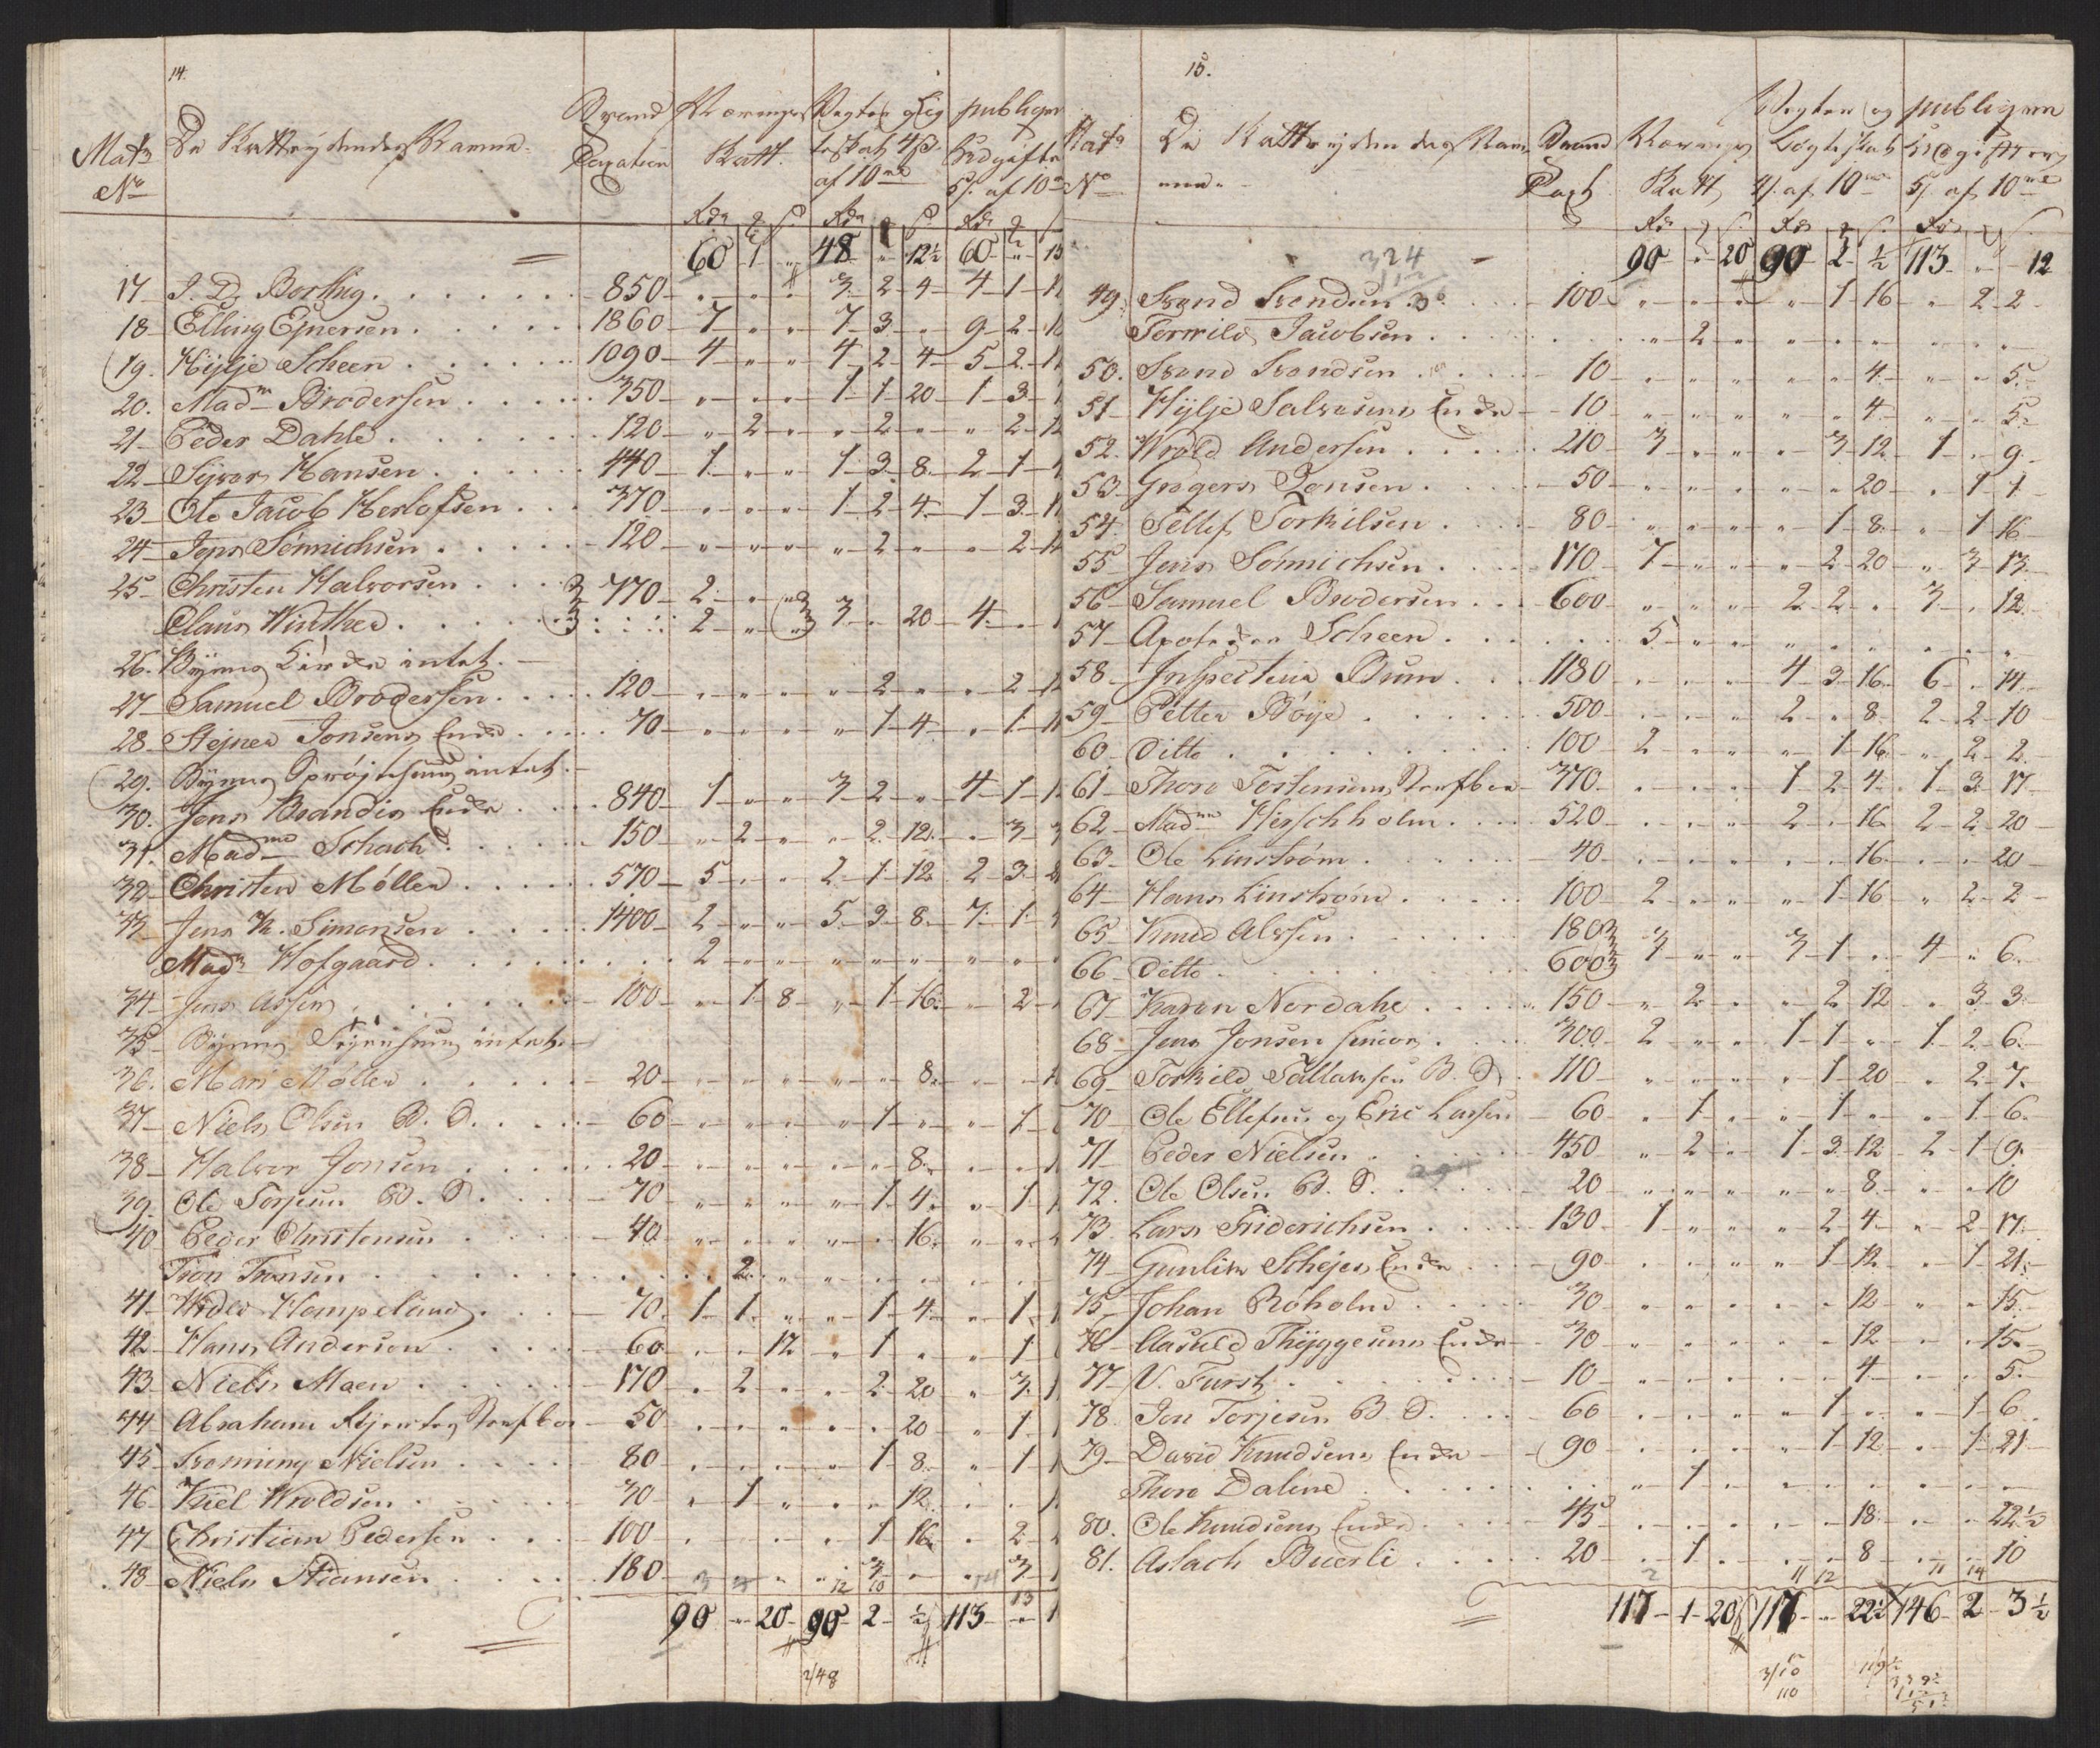 14.
Matr No De Skatteydendes Navne. Brand Taxation Nærings Skatt. Vegter og Lig testatt 4 s. af 10 publiqve Udgifter 5 s. af 10
60 1 " 48 " 12½ 60 " 13
17 J. D. Borthig 850 " " " 3 2 4 4 1
18 Elling Ejversen 1860 7 " " 7 3 " 9 2
19. Hylje Scheen 1090 4 " " 4 2 4 5 2
20. Mad Brodersen 350 " " " 1 1 20 1 3
21 Peder Dahle 120 " 2 " " 2 " " 2
22 Syver Hansen 440 1 " " 1 3 8 2 1
23 Ole Jacob Herlofsen 370 " " " 1 2 4 1 3
24 Jens Sønnichsen 120 " " " " 2 " " 2
25 Christen Halvorsen 770 2 " "
Claus Winther 2 " " 3 " 20 4 "
26. Byens intet.
27 Samuel Brodersen 120 " " " " 2 " " 2
28 Stejner Jonsens Enke 70 " " " " 1 4 " 1
29. Byens Sprøjtehuus intet.
30. Jens Brandis Enke 840 1 " " 3 2 " 4 1
31. Madme Schach 150 " 2 " " 2 12 " 3
32 Christen Møller 570 5 " " 2 1 12 2 3
33 Jens K. Simonsen 1400 2 " " 5 3 8 7 1
Madm Hofgaard 2 " " " " " " "
34 Jens Assen 100 " 1 8 " 1 16 " 2
35 Byens intet.
36. Mari Møller 20 " " " " " 8 " "
37 Niels Olsen B. S. 60 " " " " 1 " " 1
38 Halvor Jonsen 20 " " " " " 8 " "
39. Ole Torjesen B. S. 70 " " " " 1 4 " 1
40 Peder Christensen 40 " " " " " 16 " "
Tron Tronsen 2 " " " " " "
41 Hampeland 70 1 1 " " 1 4 " 1
42 Hans Andersen 60 " " 12 " 1 " " 1
43 Niels Maen 170 " 2 " " 2 20 " 3
44 Abraham 50 " " " " " 20 " 1
45 Svenning Nielsen 80 " " " " 1 8 " 1
46 Kiel Wroldsen 30 " 1 " " " 12 " "
47 Christian Pedersen 100 " " " " 1 16 " 2
48 Niels Stiansen 180 " " " " 3 " " 3
90 " 20 90 2 ½ 113 "
2/48
15.
Matr No De Skatteydendes Navne Brand Taxt Nærings Skatt Vegter og Lygteskat 4 s. af 10 publiqve Udgifter 5 s. af 10
324
90 " 20 90 2 ½ 113 " 12
49. Svend Svendsen 100 " " " " 1 16 " 2 2
Torkild Jacobsen " 2 " " " " " " "
50. Svend Svendsen 10 " " " " " 4 " " 5
51 Hylje Salvesens Enke 10 " " " " " 4 " " 5
52. Wrold Andersen 210 3 " " " 3 12 1 " 9
53 Gregers Jensen 50 " " " " " 20 " 1 1
54. Tellef Torkilsen 80 " " " " 1 8 " 1 16
55 Jens Sønnichsen 170 7 " " " 2 20 " 3 13
56 Samuel Brodersen 600 " " " 2 2 " 3 " 12
57 Apoteker Scheen 5 " " " " " " " "
58 Inspecteur Brun 1180 " " " 4 3 16 6 " 14
59 Petter Bøye 500 " " " 2 " 8 2 2 10
60 Ditto 100 2 " " " 1 16 " 2 2
61 Thore Tostensens 370 " " " 1 2 4 1 3 17
62 Madme Hirschholm 520 " " " 2 " 16 2 2 20
63 Ole Linstrøm 40 " " " " " 16 " " 20
64 Hans Linstrøm 100 2 " " " 1 16 " 2 2
65 Knud Alvsen 180
66 Ditto 600 7 " " 3 1 " 4 " 6
67 Karen Nordahe 150 " 2 " " 2 12 " 3 3
68 Jens Jonsen Senior 300 2 " " 1 1 " 1 2 6
69 Torkild Tallaksen B. S. 110 " " " " 1 20 " 2 7
70 Ole Ellefsen og Eric Larsen 60 " 1 " " 1 " " 1 6
71 Peder Nielsen 450 " 2 " 1 3 12 2 1 9
72. Ole Olsen B. S. 20 " " " " " 8 " " 10
73. Lars Friderichsen 130 1 " " " 2 4 " 2 17
74 Gunlik Schejes Enke 90 " " " " 1 12 " 1 21
75 Johan Røholm 30 " " " " " 12 " " 15
76 Aasuld Thyggesens Enke 30 " " " " " 12 " " 15
77 N. Furst 10 " " " " " 4 " " 5
78. Jon Torjesen B. S. 60 " " " " 1 " " 1 6
79 David Knudsens Enke 90 " " " " 1 12 " 1 21
Thore Daline " 1 " " " " " " "
80. Ole Knudsens Enke 45 " " " " " 18 " " 22½
81. Aslach Buerli 20 " 1 " " " 8 " " 10
117 1 20 117 " 22½ 146 2 3½